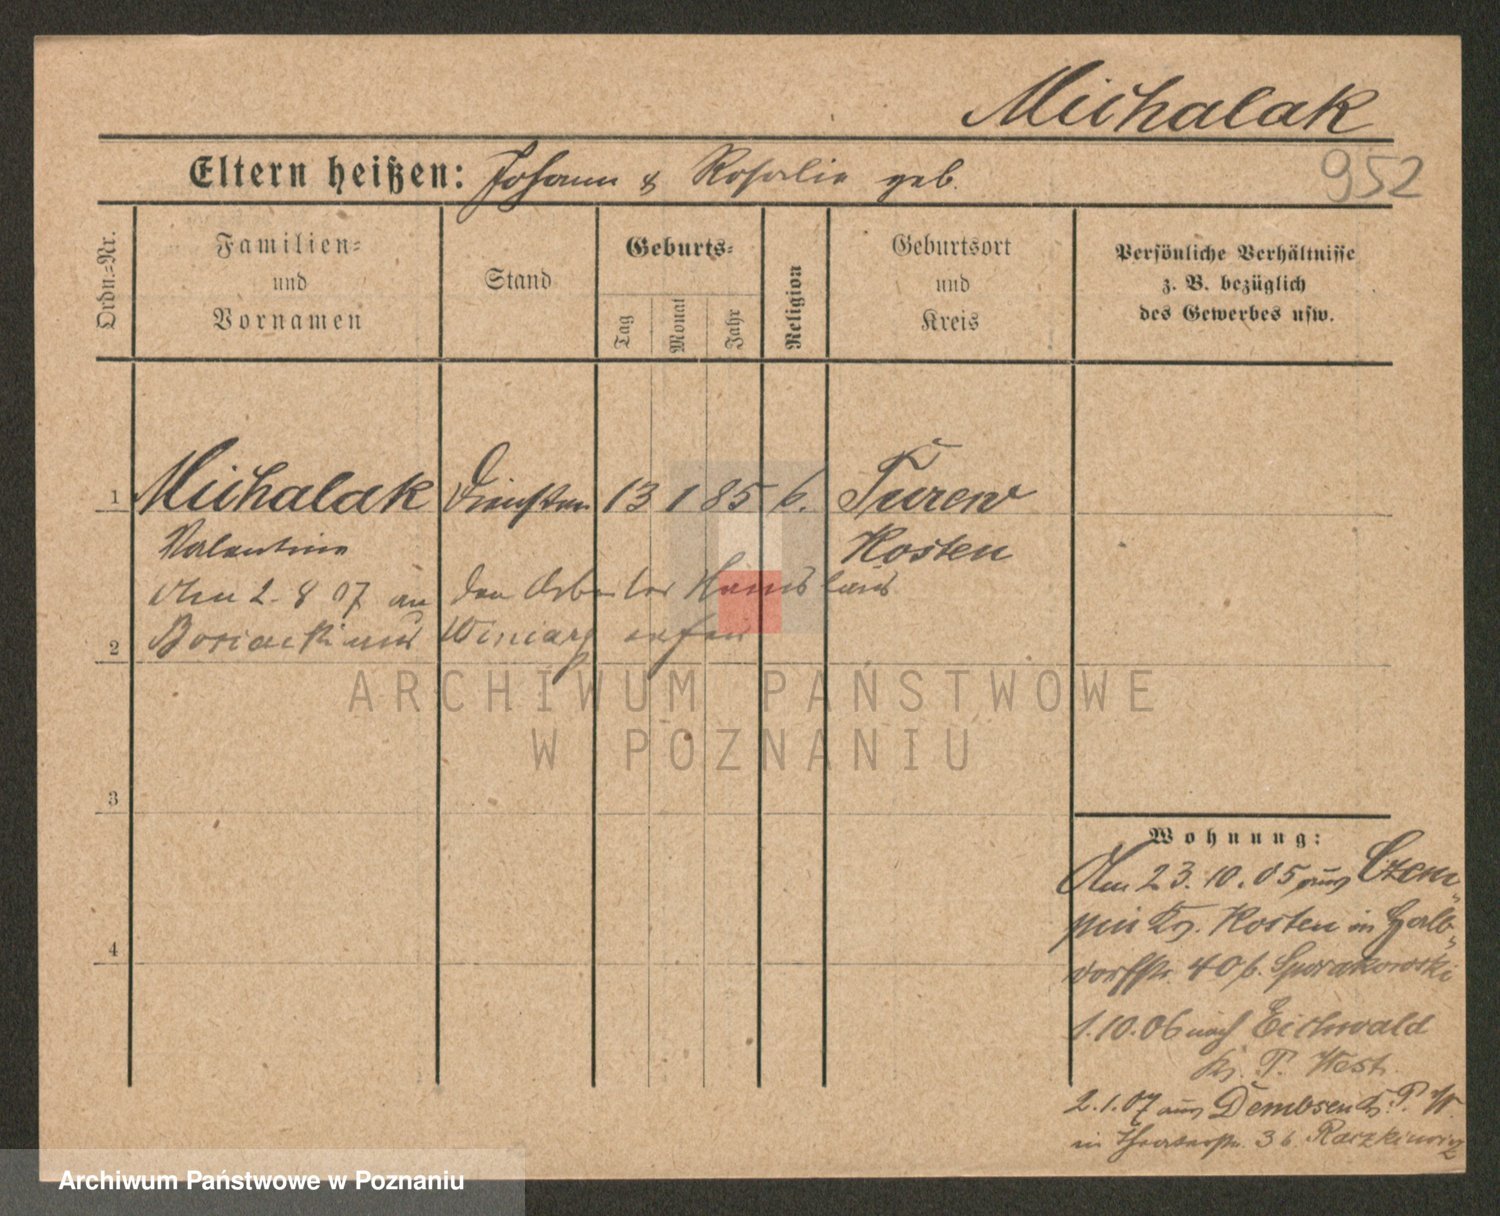 Michalak
952
Eltern heißen: Johann & Rosalie geb.
Ordn.=Nr.
Familien=
und
Vornamen
Stand
Geburts=
Tag
Monat
Jahr
Religion
Geburtsort
und
Kreis
Persönliche Verhältnisse
z. B. bezüglich
des Gewerbes usw.
1 Michalak 13 1 85 k. Turew
Valentine Kosten
Am 2. 8 07 an den Arbeiter
2 aus Winiary
3
4
ARCHIWUM PAŃSTWOWE
W POZNANIU
Wohnung:
Am 23.10.05 aus Czem=
pin Kr. Kosten in Halb=
dorfstr. 40 b. Sporakowski
1.10.06 nach Eichwald
Kr. P. West.
2.1.07 aus Dembsen Kr. P. W.
in Theaterstr. 3 b. Raczkiewicz
Archiwum Państwowe w Poznaniu